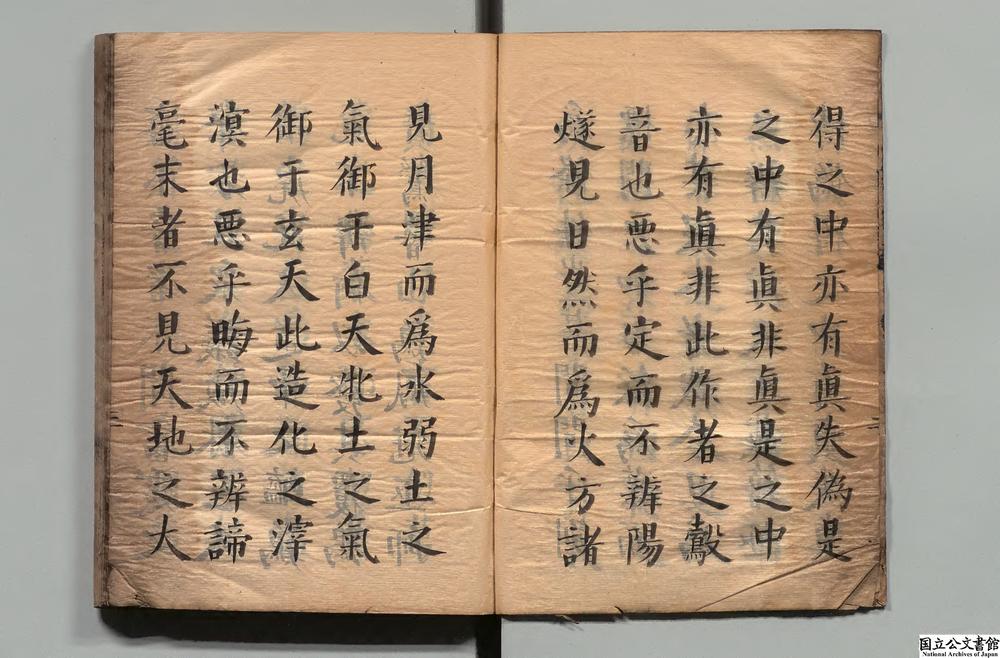 得之中亦有眞失僞是
之中有眞非眞是之中
亦有眞非此作者之鷇
音也悪乎定而不辨陽
燧見日然而爲火方諸
見月津而爲水弱土之
氣御于白天牝土之氣
御于玄天此造化之滓
溟也悪乎晦而不辨諦
毫末者不見天地之大
国立公文書館
National Archives of Japan